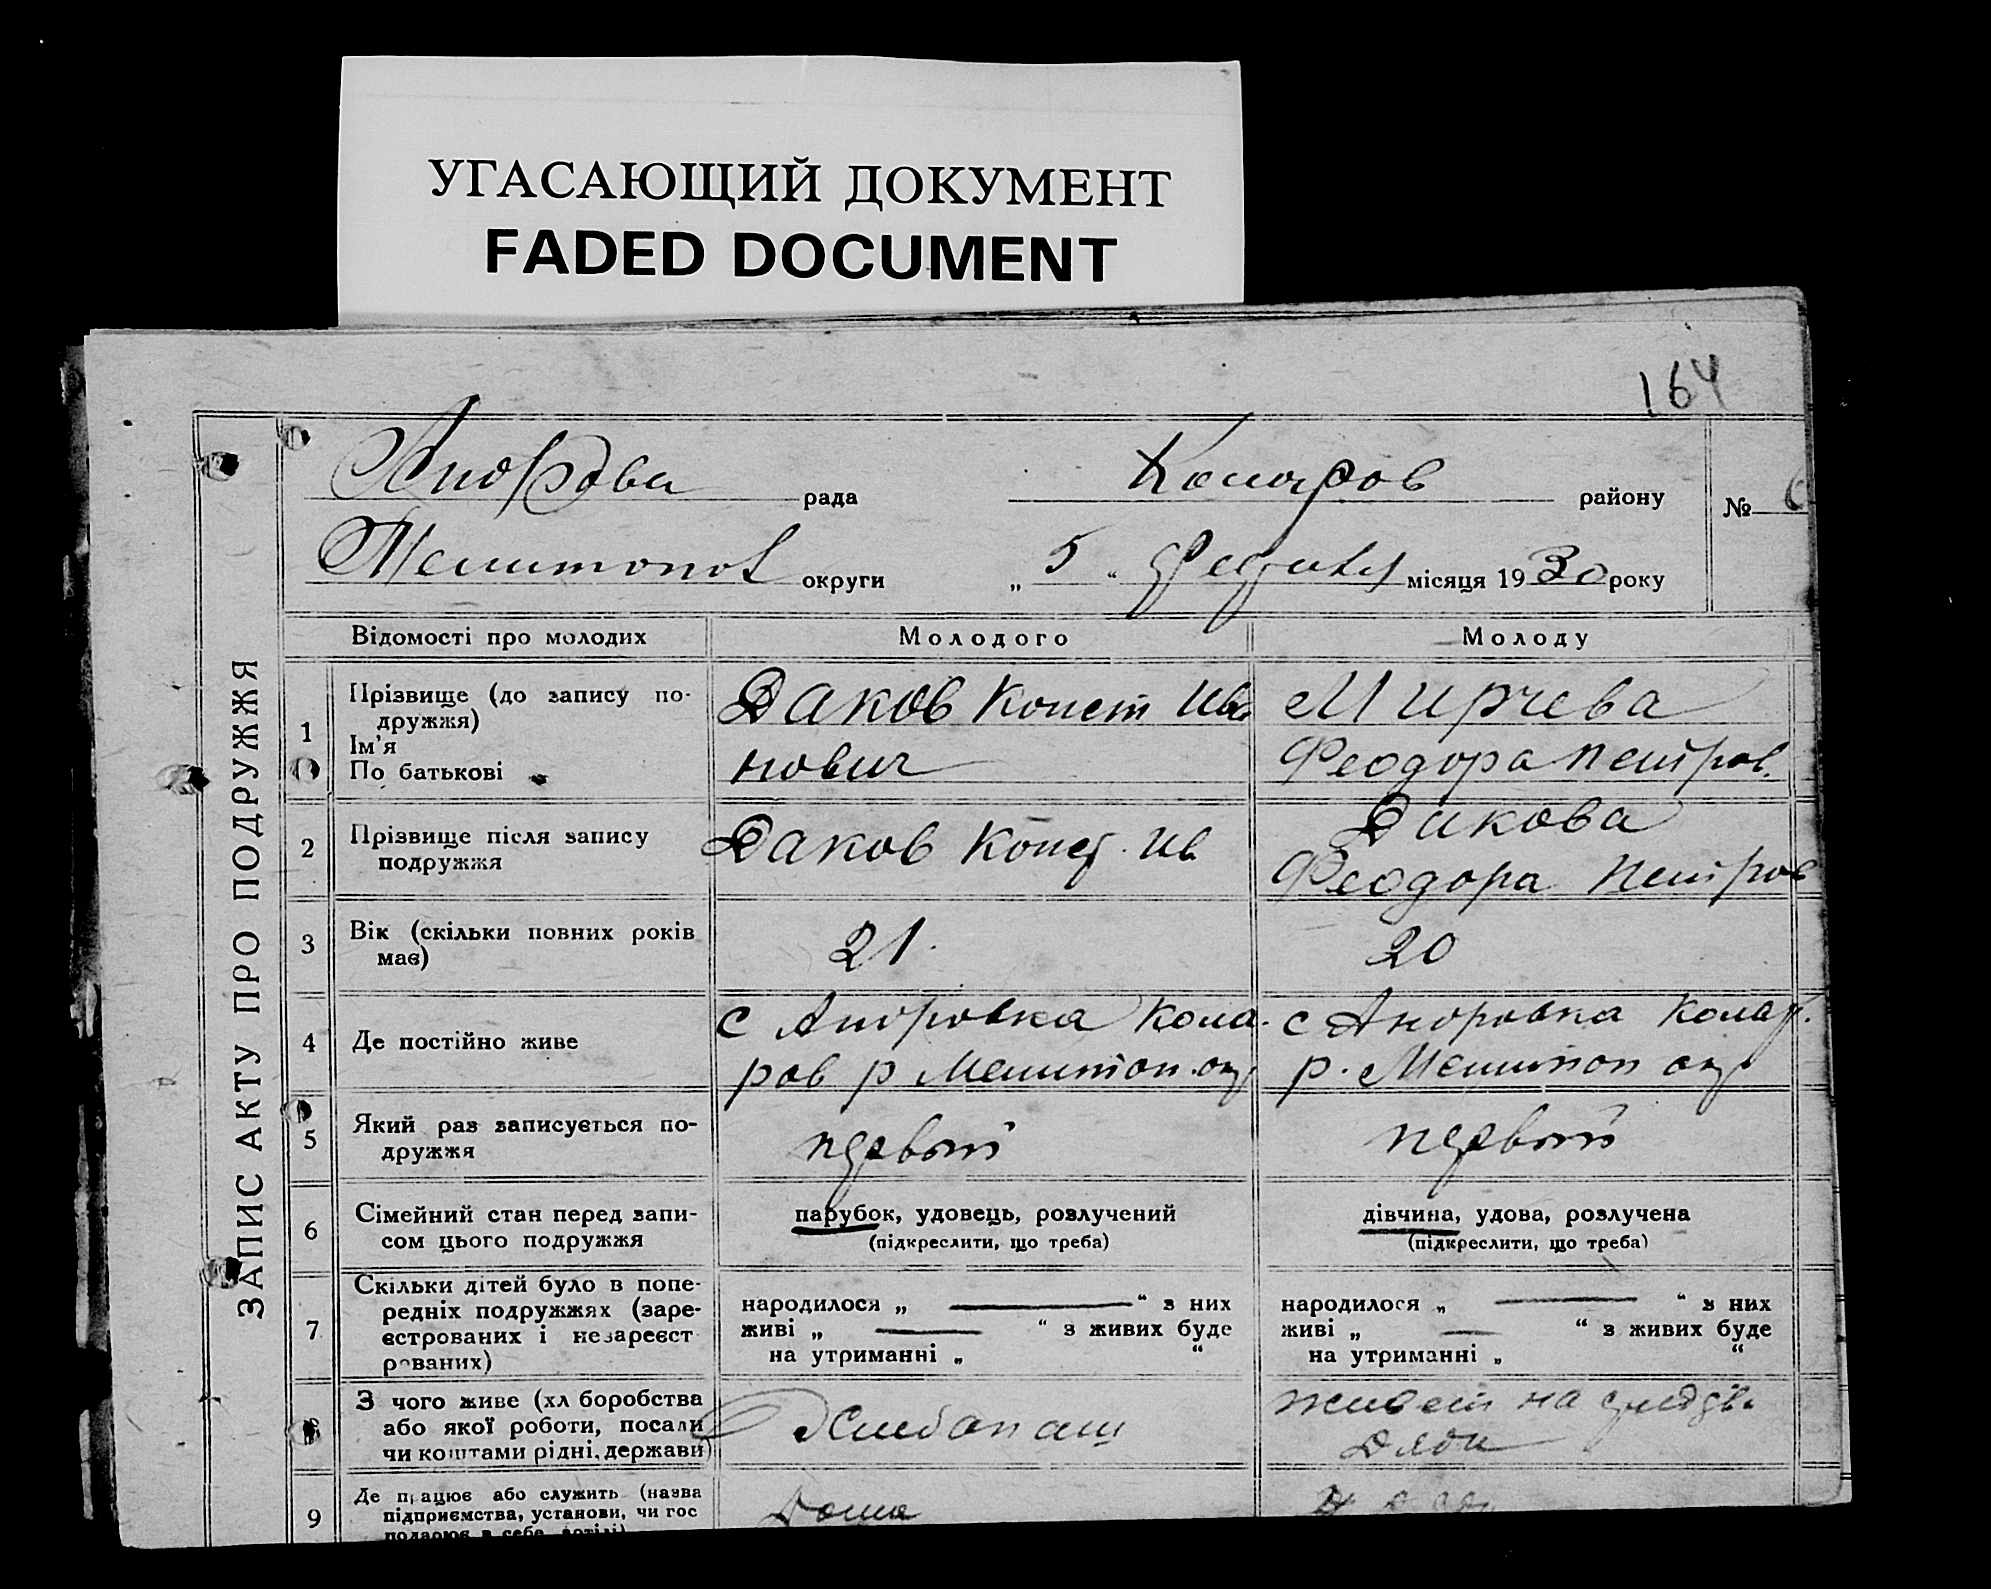 УГАСАЮЩИЙ ДОКУМЕНТ
FADED DOCUMENT
164
рада Коларов району №
Мелитопол округи „ 5 “ місяця 1930 року
ЗАПИС АКТУ ПРО ПОДРУЖЖЯ
Відомості про молодих Молодого Молоду
1 Прізвище (до запису по-
дружжя)
Ім'я
По батькові
Даков Конст Ива
нович
Мирчева
Феодора Петров.
2 Прізвище після запису
подружжя
Даков Конст. Ив
Дикова
Феодора Петров
3 Вік (скільки повних років
має)
21
20
4 Де постійно живе
с Аноровка Кола-
ров р Мелитоп. окр
с Аноровка Колар.
р. Мелитоп окр
5 Який раз записується по-
дружжя
первый
первый
6 Сімейний стан перед запи-
сом цього подружжя
парубок, удовець, розлучений
(підкреслити, що треба)
дівчина, удова, розлучена
(підкреслити, що треба)
7 Скільки дітей було в попе-
редніх подружжях (заре-
єстрованих і незареєст
рованих)
народилося „ — “ з них
живі „ — “ з живих буде
на утриманні „ “
народилося „ — “ з них
живі „ — “ з живих буде
на утриманні „ “
8 З чого живе (хл боробства
або якої роботи, посади
чи коштами рідні, держави)
Хлебопаш
живет на
Дяди
9 Де працює або служить (назва
підприємства, установи, чи гос
подарює в себе, артілі)
Дома